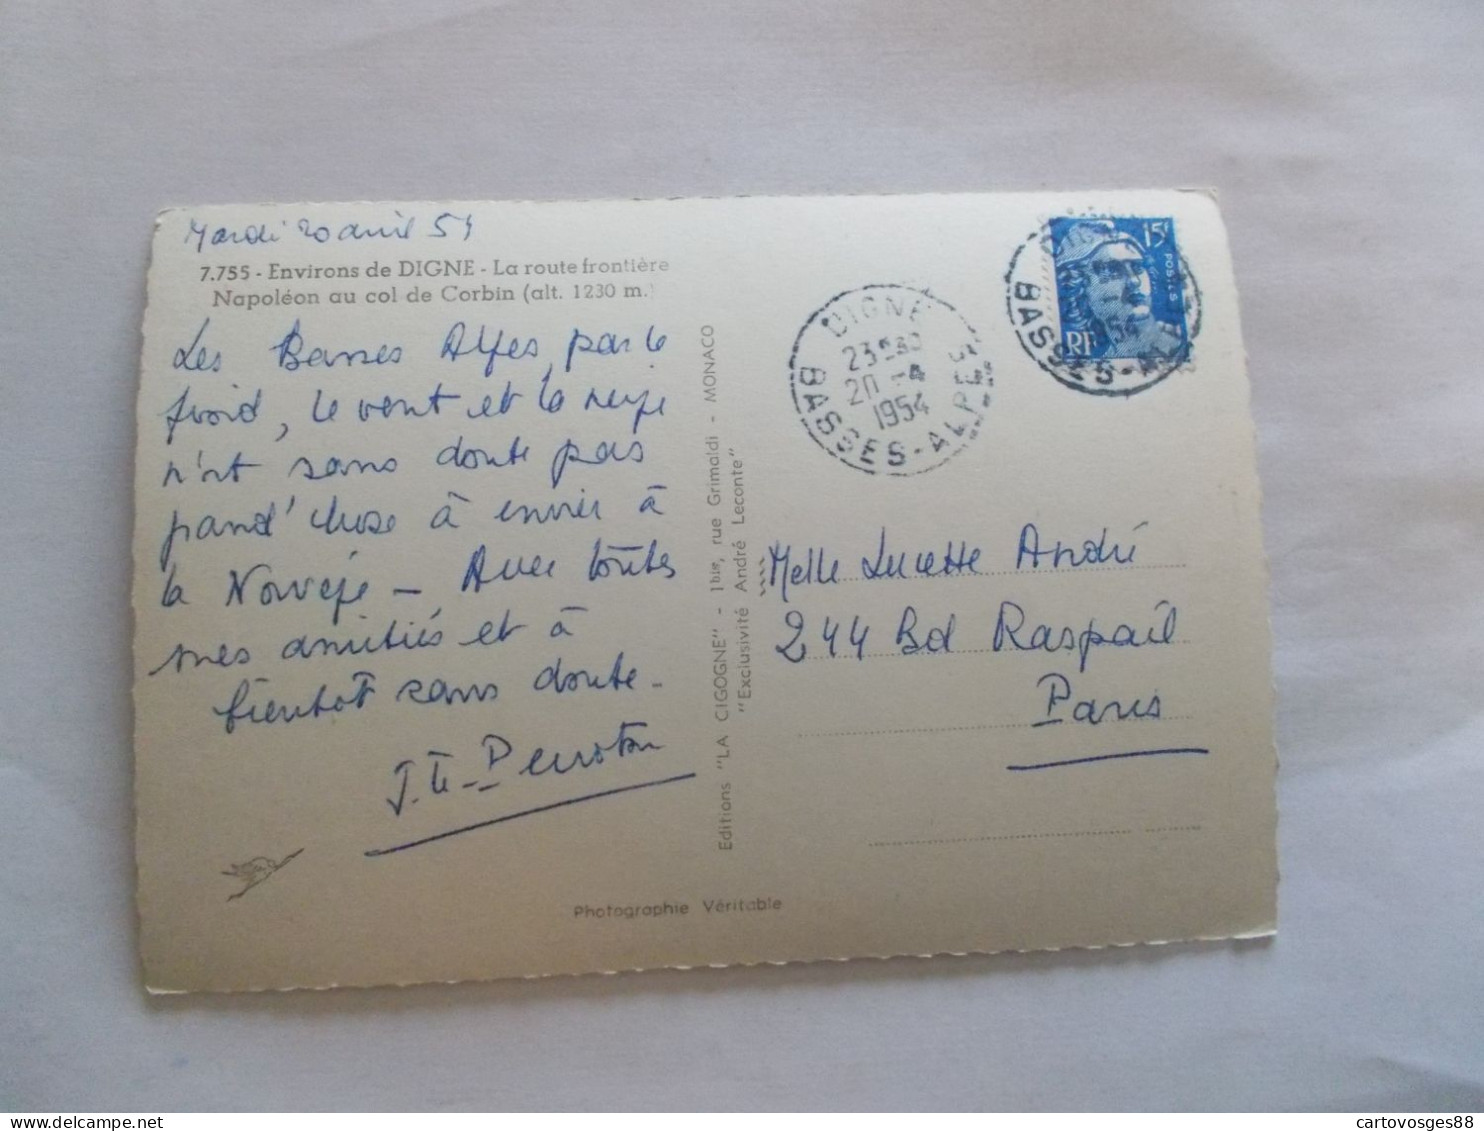 Mardi 20 avril 54
7.755 - Environs de DIGNE - La route frontière
Napoléon au col de Corbin (alt. 1230 m.)
Les Basses Alpes, par le
froid, le vent et la neige
n'ont sans doute pas
grand'chose à envier à
la Norvège – Avec toutes
mes amitiés et à
bientôt sans doute –
Perrotin
Photographie Véritable
Editions "LA CIGOGNE" - 1bis, rue Grimaldi - MONACO
"Exclusivité André Leconte"
DIGNE
20 -4
1954
BASSES-ALPES
DIGNE
-4
1954
BASSES-ALPES
15F
POSTES
RF
Melle Lucette André
244 Bd Raspail
Paris
cartovosges88